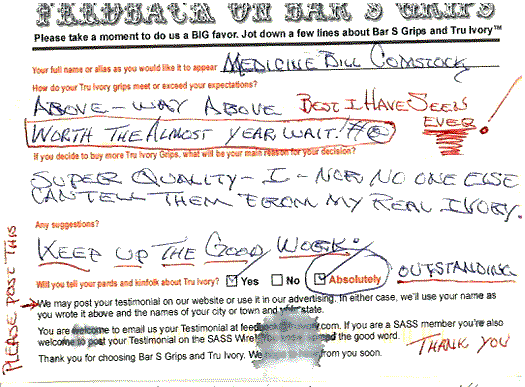 FEEDBACK ON BAR S GRIPS
Please take a moment to do us a BIG favor. Jot down a few lines about Bar S Grips and Tru Ivory™
Your full name or alias as you would like it to appear MEDICINE BILL COMSTOCK
How do your Tru Ivory grips meet or exceed your expectations?
ABOVE - WAY ABOVE BEST I HAVE SEEN
EVER
WORTH THE ALMOST YEAR WAIT!
If you decide to buy more Tru Ivory Grips, what will be your main reason for your decision?
SUPER QUALITY - I - NOR NO ONE ELSE
CAN TELL THEM FROM MY REAL IVORY.
Any suggestions?
KEEP UP THE GOOD WORK.
Will you tell your pards and kinfolk about Tru Ivory? Yes No Absolutely OUTSTANDING
PLEASE POST THIS
We may post your testimonial on our website or use it in our advertising. In either case, we'll use your name as
you wrote it above and the names of your city or town and your state.
You are welcome to email us your Testimonial at If you are a SASS member you're also
welcome to post your Testimonial on the SASS Wire the good word.
Thank you for choosing Bar S Grips and Tru Ivory. We from you soon.
THANK YOU